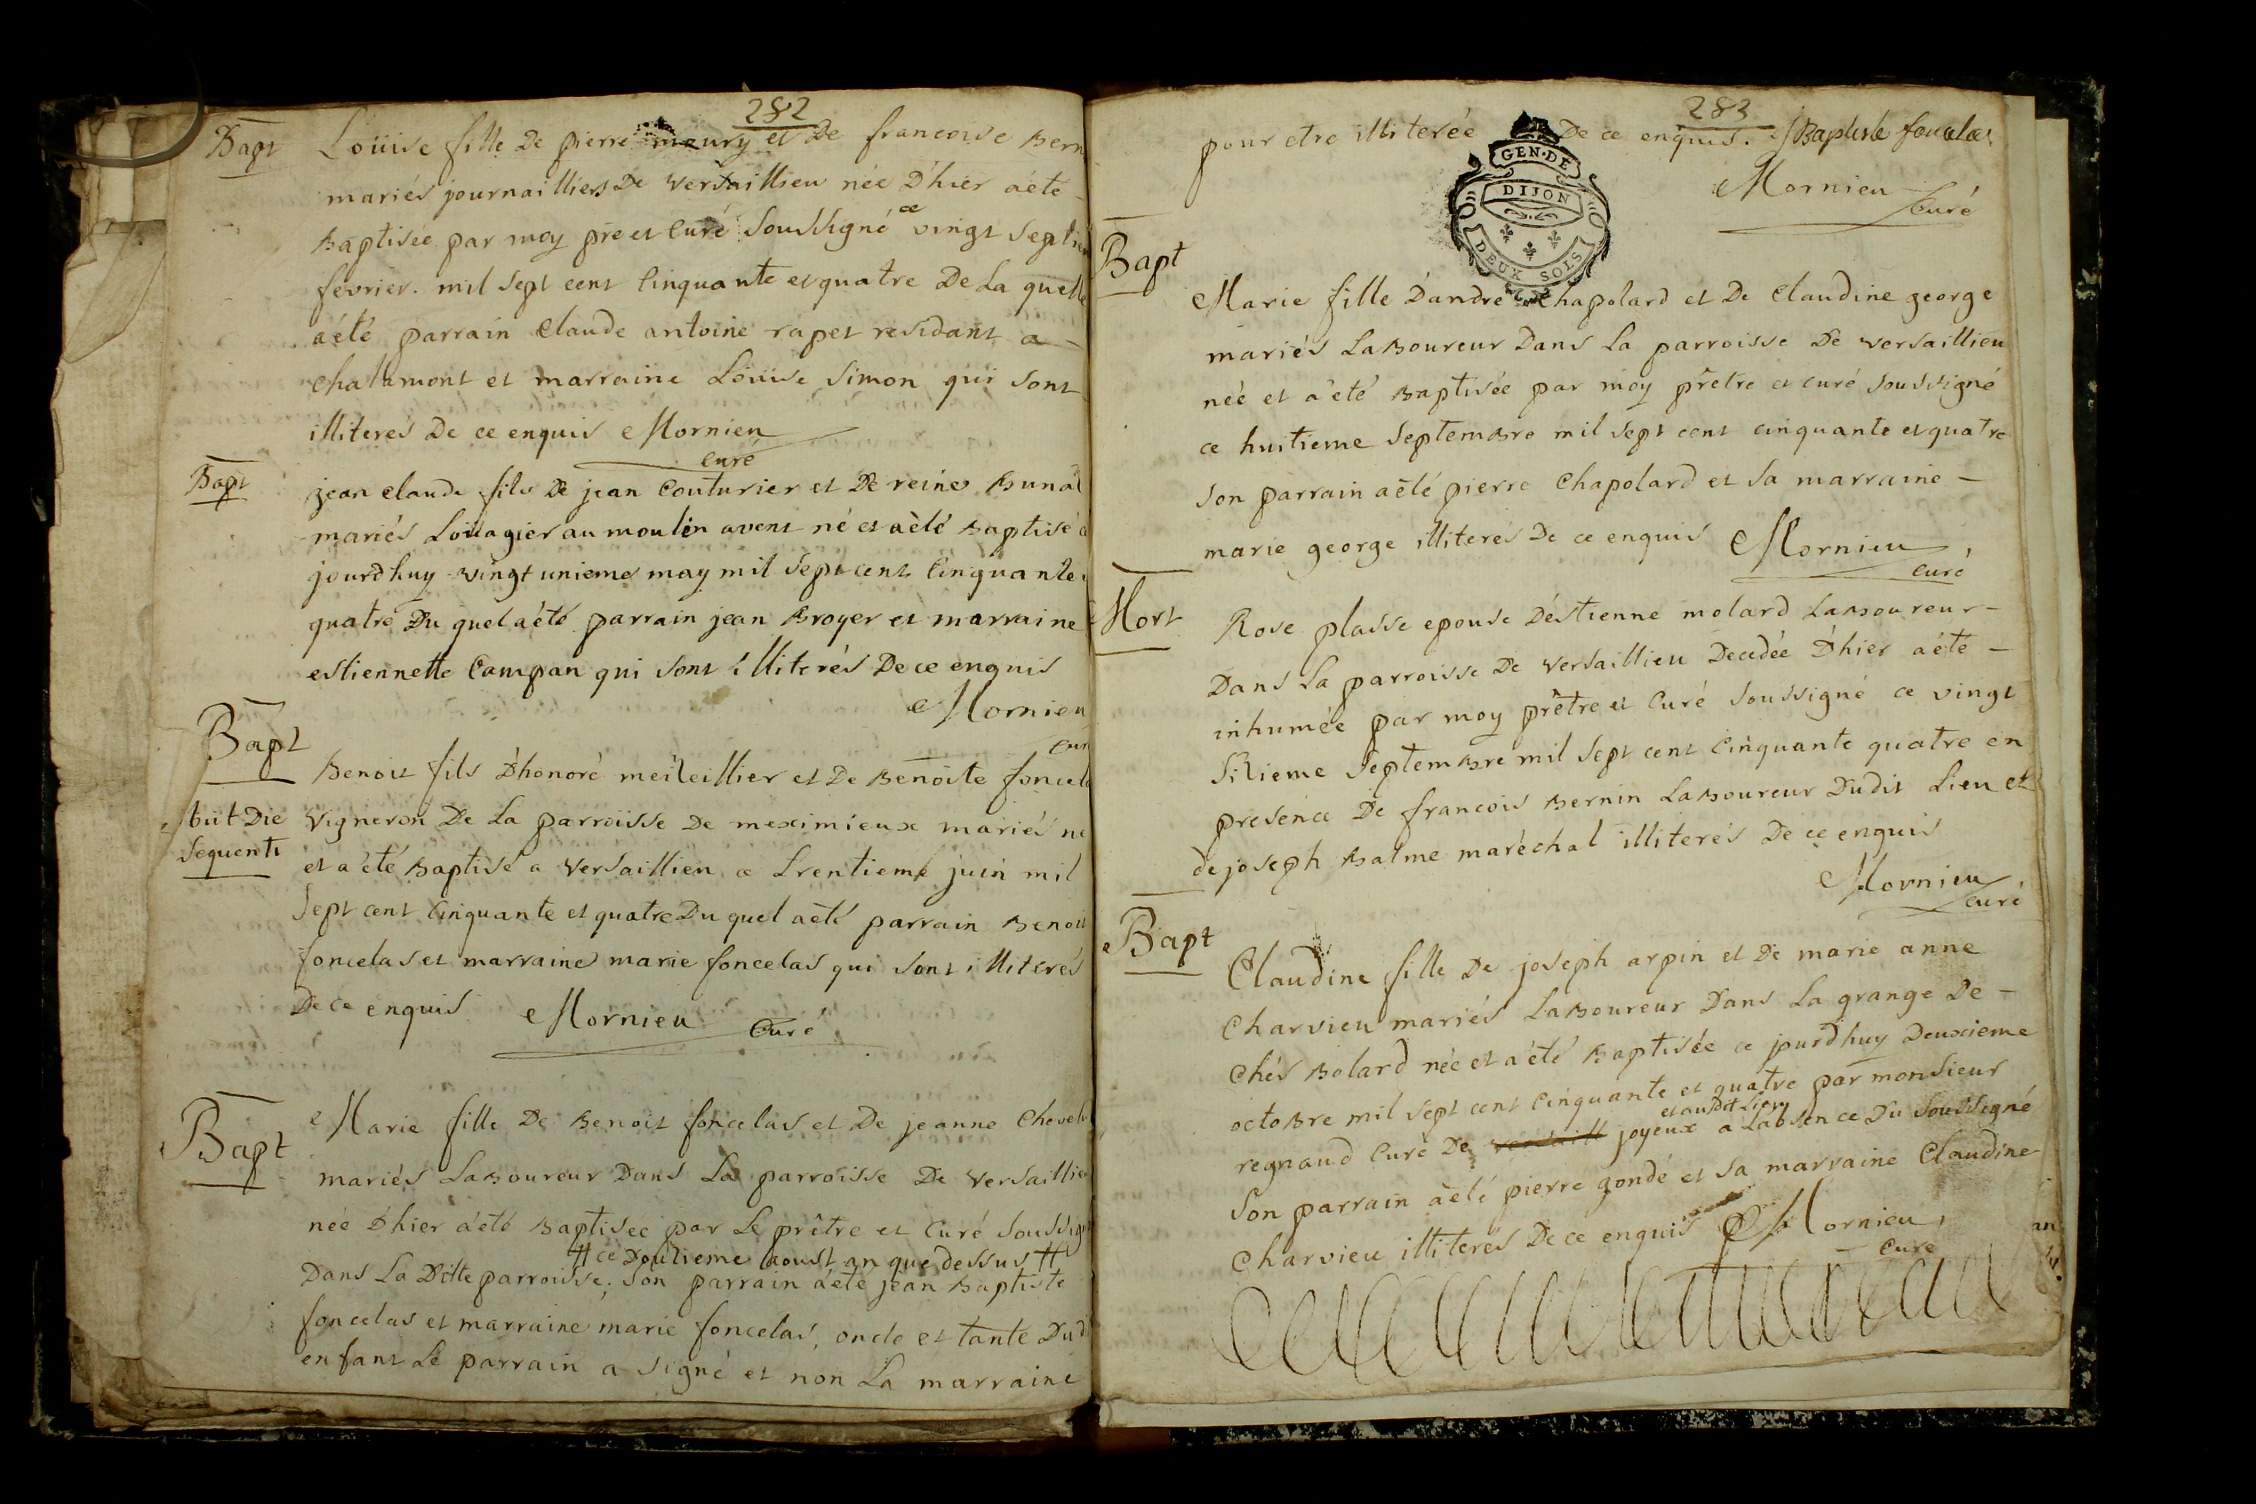 282
Bapt
Loüise fille De pierre meury et De francoise Bern
mariés journailliers De Versaillieu née D'hier aété
Baptisée par moy pre et Curé Soussigné ce vingt Septie
fevrier. mil Sept cent Cinquante et quatre De La quelle
aété parrain Claude antoine rapet residant a
Chatamont et marraine Loüise Simon qui sont
illiterés De ce enquis Mornieu
Curé
Bapt
jean claude fils De jean Couturier et De reine Bunat
mariés Loüagier au moulin avent né et aété Baptisé
jourdhuy vingt unieme may mil Sept cent Cinquante
quatre Du quel aété parrain jean Broyer et marraine
estiennette Campan qui sont illiterés De ce enquis
Mornieu
Cur
Bapt
Benoit fils D'honoré meileillier et De Benoite foncela
biit Die
Sequenti
Vigneron De La parroisse De meximieux mariés né
et a été Baptisé a Versaillieu ce trentieme juin mil
Sept cent Cinquante et quatre Du quel aété parrain Benoit
foncelas et marraine marie foncelas qui sont illiterés
De ce enquis Mornieu Curé
Bapt
Marie fille De Benoit foncelas et De jeanne Chevela
mariés LaBoureur Dans La parroisse De Versaillieu
née D'hier aété Baptisée par Le prêtre et Curé Soussign
# ce Douzieme aoust an que dessus #
Dans La Ditte parroisse; Son parrain aété jean Baptiste
foncelas et marraine marie foncelas, oncle et tante Dud
enfant Le parrain a signé et non La marraine
283
pour etre illiterée De ce enquis. JBaptiste foncelas
GEN·DE
DIJON
DEUX SOLS
Mornieu
Curé
Bapt
Marie fille D'andré Chapolard et De Claudine george
mariés LaBoureur Dans La parroisse De Versaillieu
née et a été Baptisée par moy prêtre et curé soussigné
ce huitieme SeptemBre mil Sept cent cinquante et quatre
Son parrain aété pierre Chapolard et Sa marraine
marie george illiterés De ce enquis Mornieu
Curé
Mort
Rose plasse epouse D'éstienne molard LaBoureur
Dans La parroisse De Versaillieu Decedée D'hier aété
inhumée par moy prêtre et Curé Soussigné ce vingt
Sixieme SeptemBre mil Sept cent Cinquante quatre en
presence De francois Bernin LaBoureur Dudit Lieu et
de joseph Balme maréchal illiterés De ce enquis
Mornieu
Curé
Bapt
Claudine fille De joseph arpin et De marie anne
Charvieu mariés LaBoureur Dans La grange De
Chés Bolard née et aété Baptisée ce jourdhuy Deuxieme
octoBre mil Sept cent Cinquante et quatre par monsieur
et audit Lieu
regnaud Curé De joyeux a L'absence Du Soussigné
Son parrain aété pierre gondé et Sa marraine Claudine
Charvieu illiterés De ce enquis Mornieu
Curé